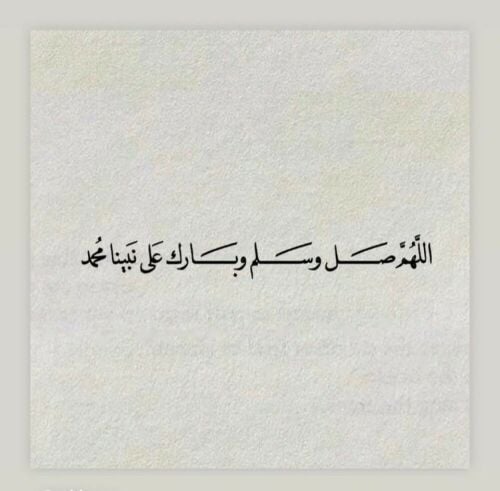 اللَّهُمَّ صَل وسَلم وبَارك عَلى نَبينا مُحمد